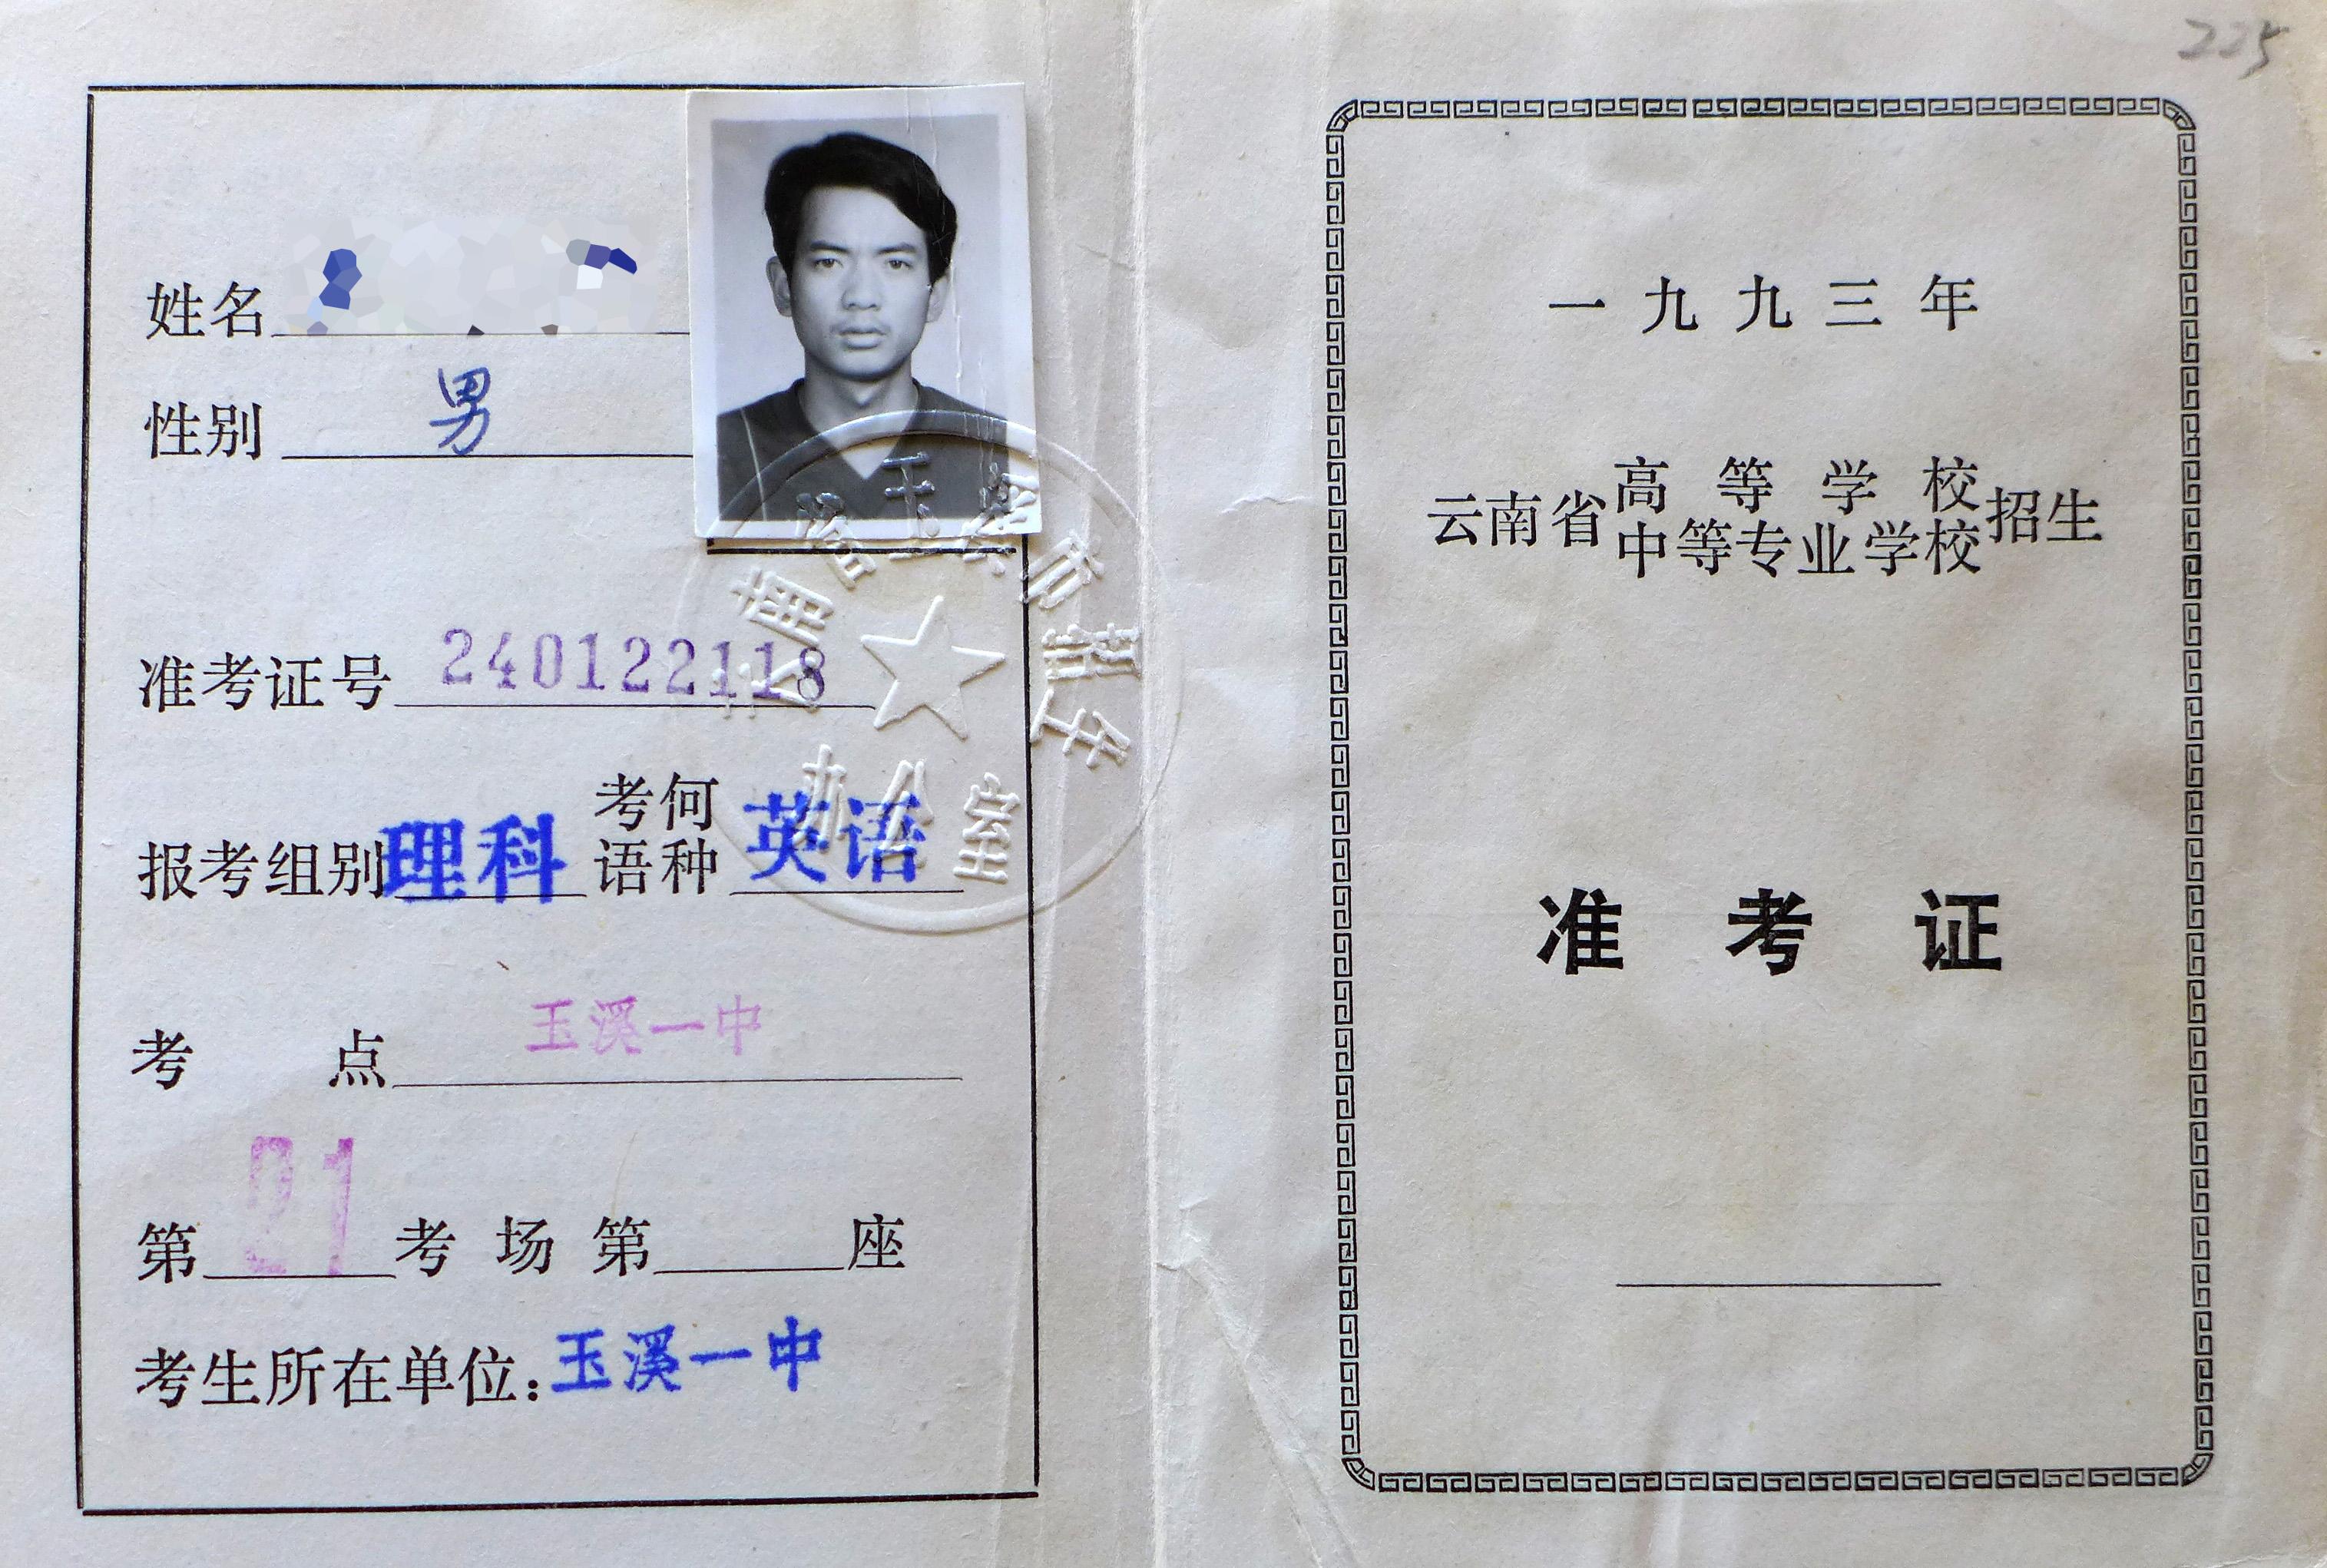 姓名
性别 男
准考证号 240122118
报考组别 理科 考何语种 英语
考点 玉溪一中
第 21 考场 第 座
考生所在单位：玉溪一中
云南省玉溪市招生
办公室
225
一九九三年
云南省高等学校中等专业学校招生
准考证